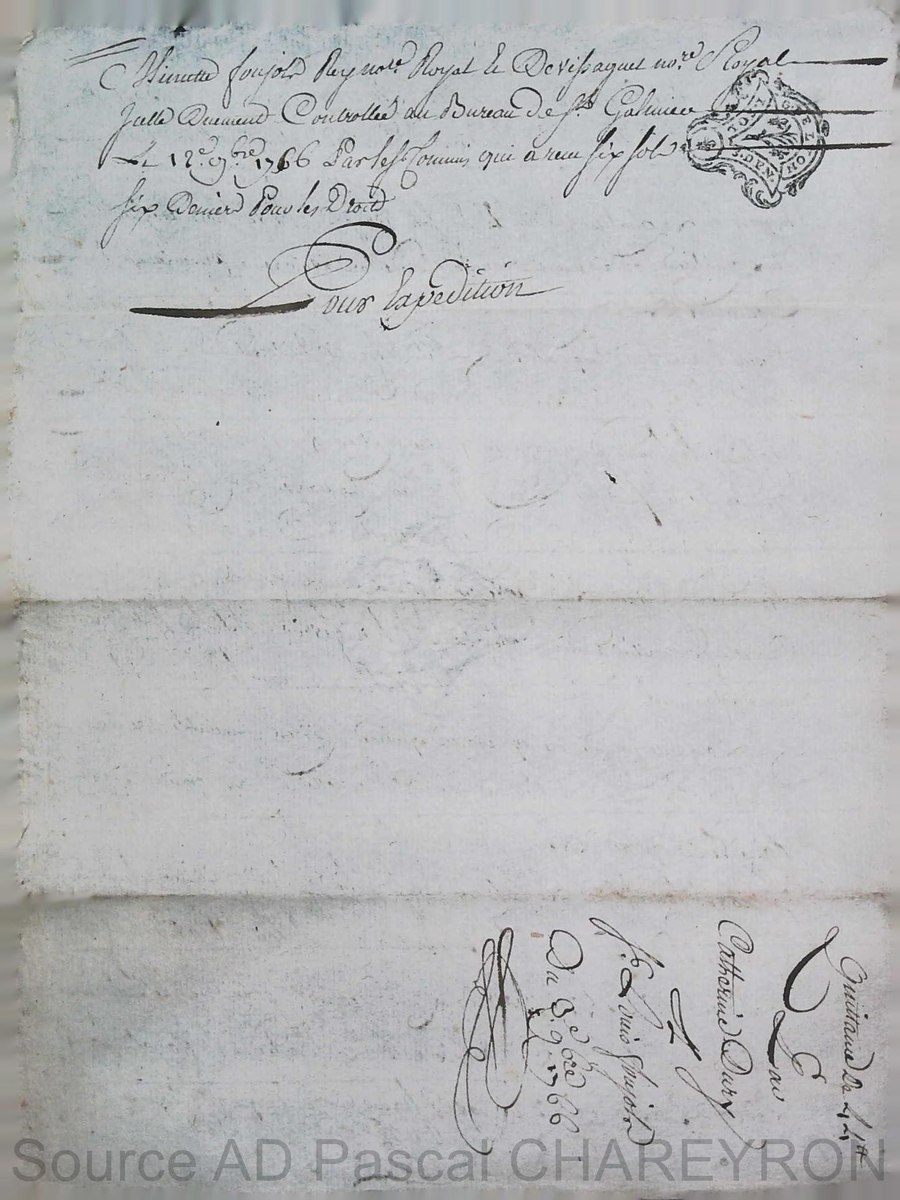 Minutte foujols Rey no.re Royal et Devissaguet no.re Royal
Icelle Duement Controllée au Bureau de S.t Galmier
Le 12.e 9.bre 1766 Par le S.r Commis qui a recu six sols
six Deniers Pour les Droits
Pour Expedition
Quittance De 44.tt
Par
Catherine Dury
A
S.r Louis
Du 3.e 9.bre 1766
Source AD Pascal CHAREYRON